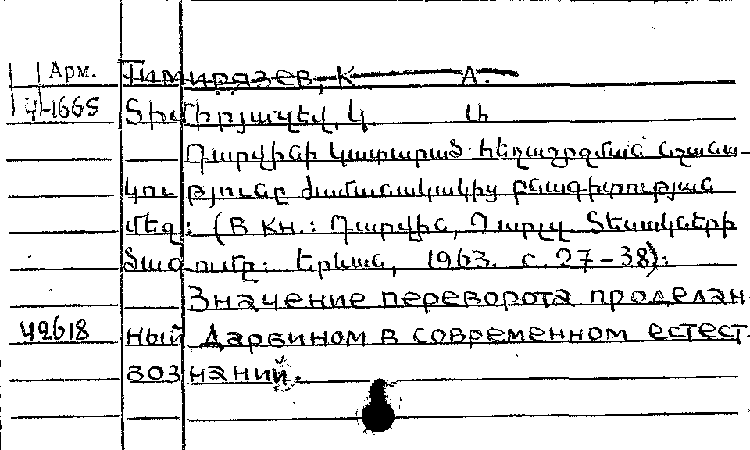 Арм. Тимирязев, К А.
Ч-1665 Տիմիրյազեվ, Կ. Ա
Դարվինի կատարած հեղաշրջման նշանա-
կությունը ժամանակակից բնագիտության
մեջ: (В кн.: Դարվին, Չարլզ. Տեսակների
ծագումը: Երևան, 1963. с. 27-38):
Значение переворота проделан
42618 ный Дарвином в современном естест-
вознаний.